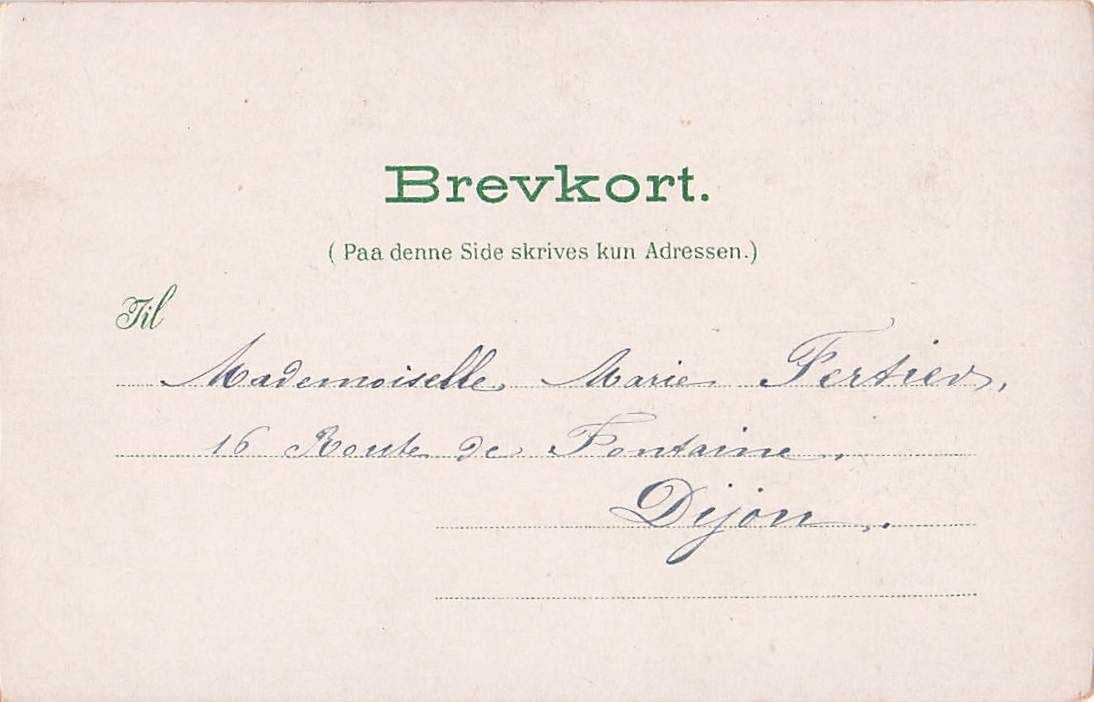 Brevkort.
(Paa denne Side skrives kun Adressen.)
Til
Mademoiselle Marie
16 Route de Fontaine,
Dijon.